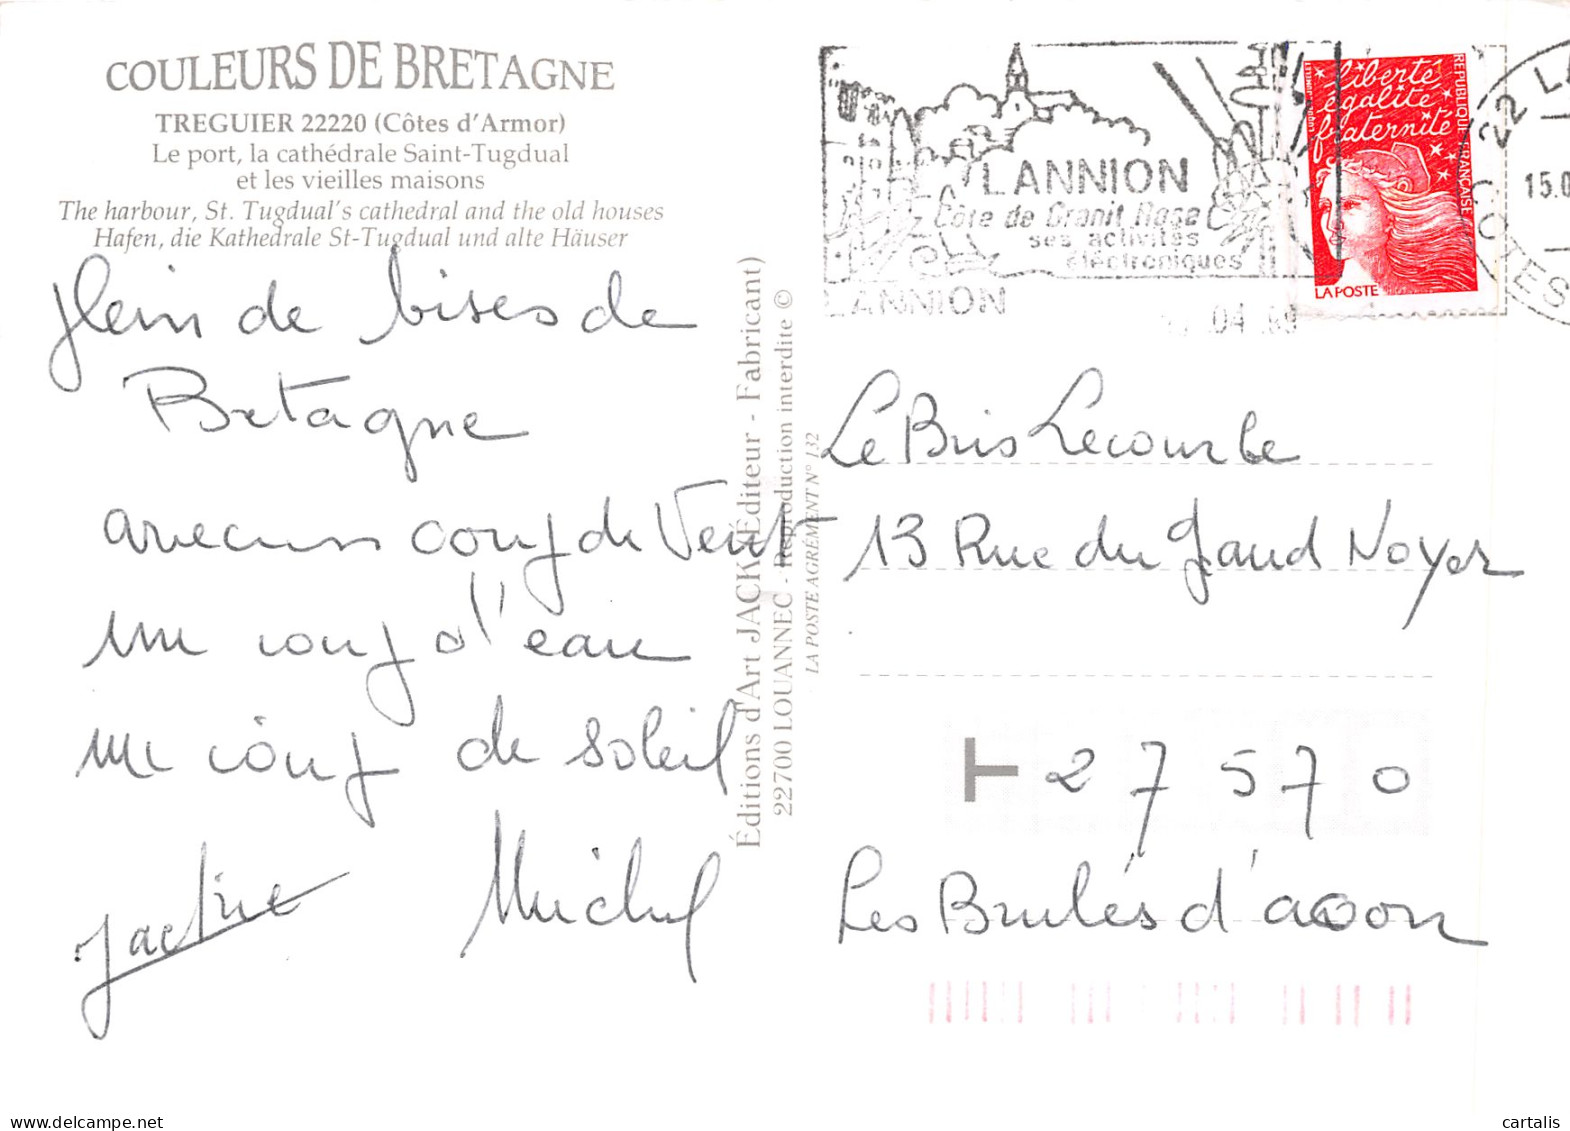 COULEURS DE BRETAGNE
TREGUIER 22220 (Côtes d'Armor)
Le port, la cathédrale Saint-Tugdual
et les vieilles maisons
The harbour, St. Tugdual's cathedral and the old houses
Hafen, die Kathedrale St-Tugdual und alte Häuser
plein de bises de
Bretagne
avec un coup de Vent
un coup d'eau
un coup de soleil
Jackie Michel
Éditions d'Art JACK Éditeur - Fabricant)
22700 LOUANNEC - Reproduction interdite ©
LA POSTE AGRÉMENT N° 132
LANNION
Côte de Granit Rose
ses activités
électroniques
LANNION
04
liberté
égalité
fraternité
RÉPUBLIQUE FRANÇAISE
LA POSTE
22 LA
15.0
COTES
Le Bris Lecourbe
13 Rue du Grand Noyer
27570
Les Brulés d'acon
cartalis